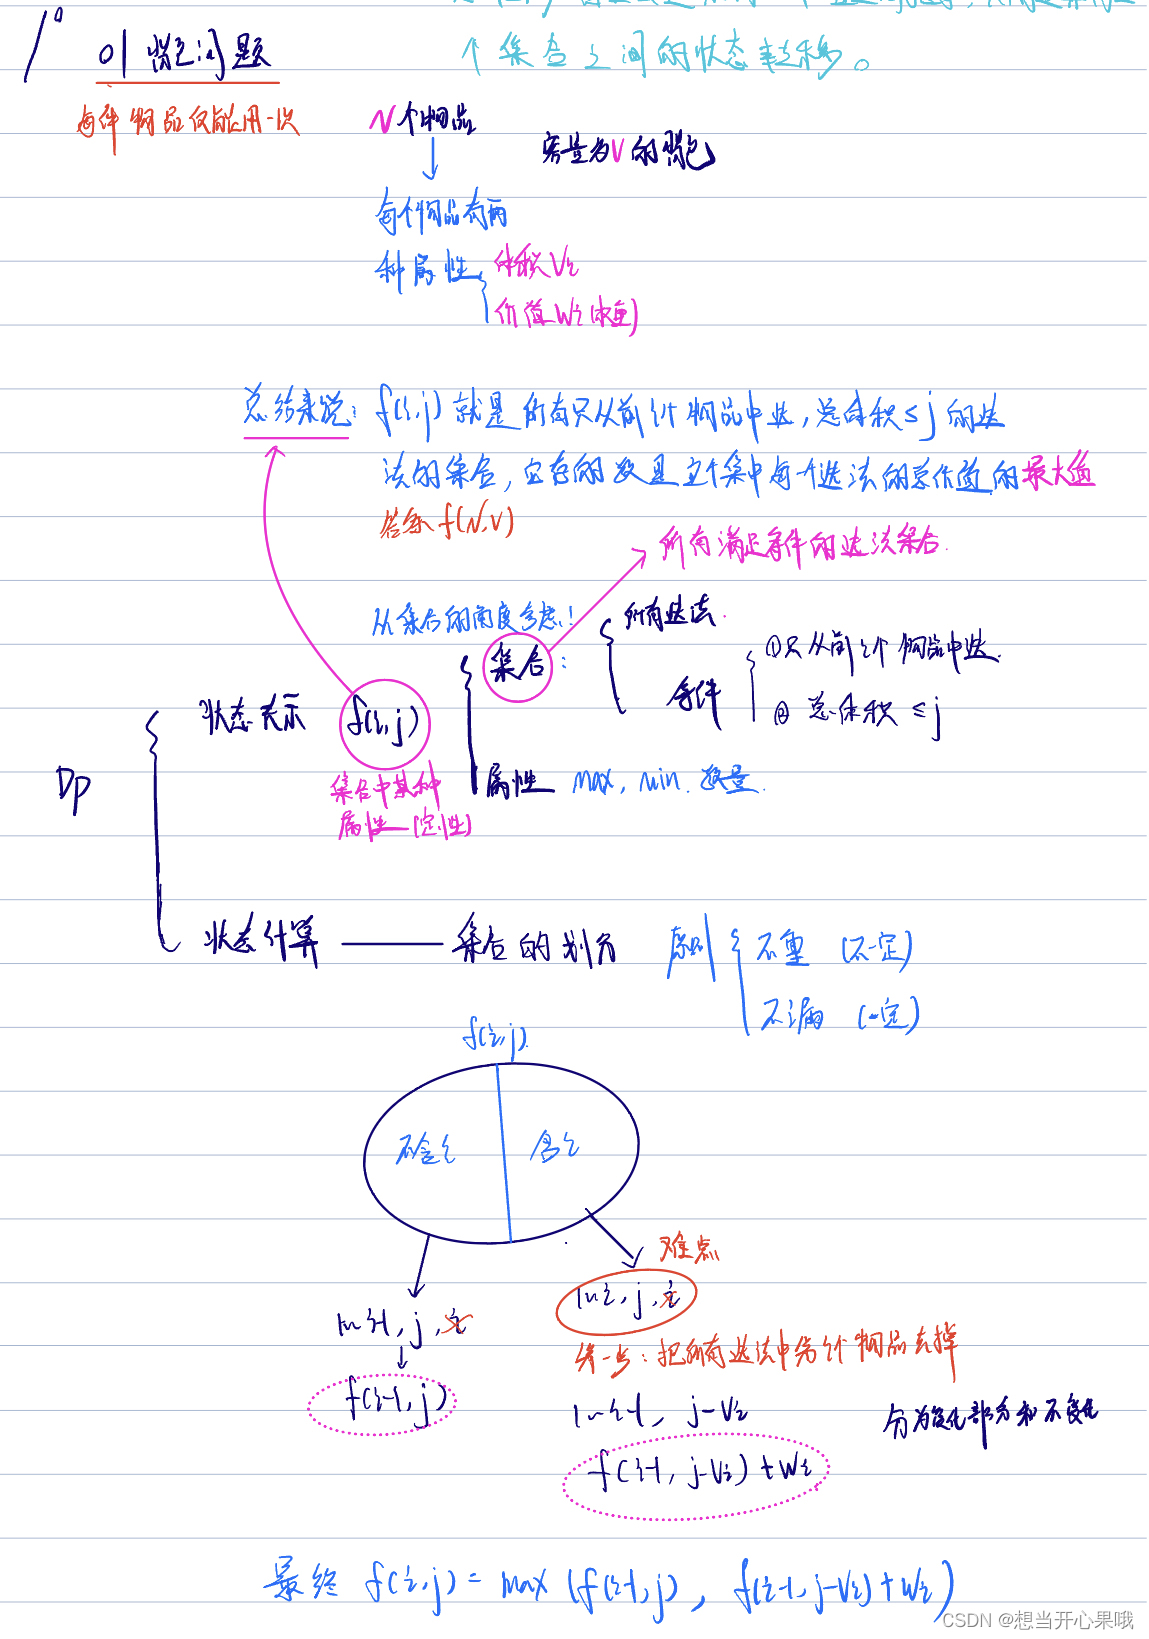 个集合之间的状态转移。
1° 01背包问题
每件物品仅能用一次
N个物品
容量为V的背包
每个物品有两
种属性
体积Vi
价值Wi(权重)
总结来说: f(i,j) 就是所有只从前i个物品中选, 总体积≤j的选
法的集合, 它存的数是这个集中每一个选法的总价值的最大值
答案 f(N,V)
所有满足条件的选法集合.
从集合的角度考虑!
所有选法.
集合:
①只从前i个物品中选.
条件
② 总体积 ≤j
状态表示 f(i,j)
DP
属性 max, min. 数量.
集合中某种
属性 (定性)
状态计算 —— 集合的划分
原则
不重 (不一定)
不漏 (一定)
f(i,j)
不含i
含i
难点
1~i, j, i
1~i-1, j, i
第一步: 把所有选法中第i个物品去掉
f(i-1, j)
1~i-1, j-Vi
分为变化部分和不变化
f(i-1, j-Vi)+Wi
最终 f(i,j) = max (f(i-1,j), f(i-1,j-Vi)+Wi)
CSDN @想当开心果哦